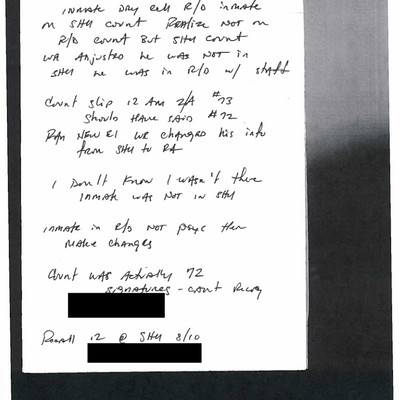 INMATE DRY CELL R/D INMATE
ON SHU COUNT REALIZE NOT ON
R/D COUNT BUT SHU COUNT
WR ADJUSTED HE WAS NOT IN
SHU HE WAS IN R/D W/ STAFF
COUNT SLIP 12 AM Z/A #73
SHOULD HAVE SAID #72
RAN NEW E1 WE CHANGED HIS INFO
FROM SHU TO
I DON'T KNOW I WASN'T THERE
INMATE WAS NOT IN SHU
INMATE IN R/D NOT THEN
MAKE CHANGES
COUNT WAS ACTUALLY 72
SIGNATURES - CAN'T
12 @ SHU 8/10